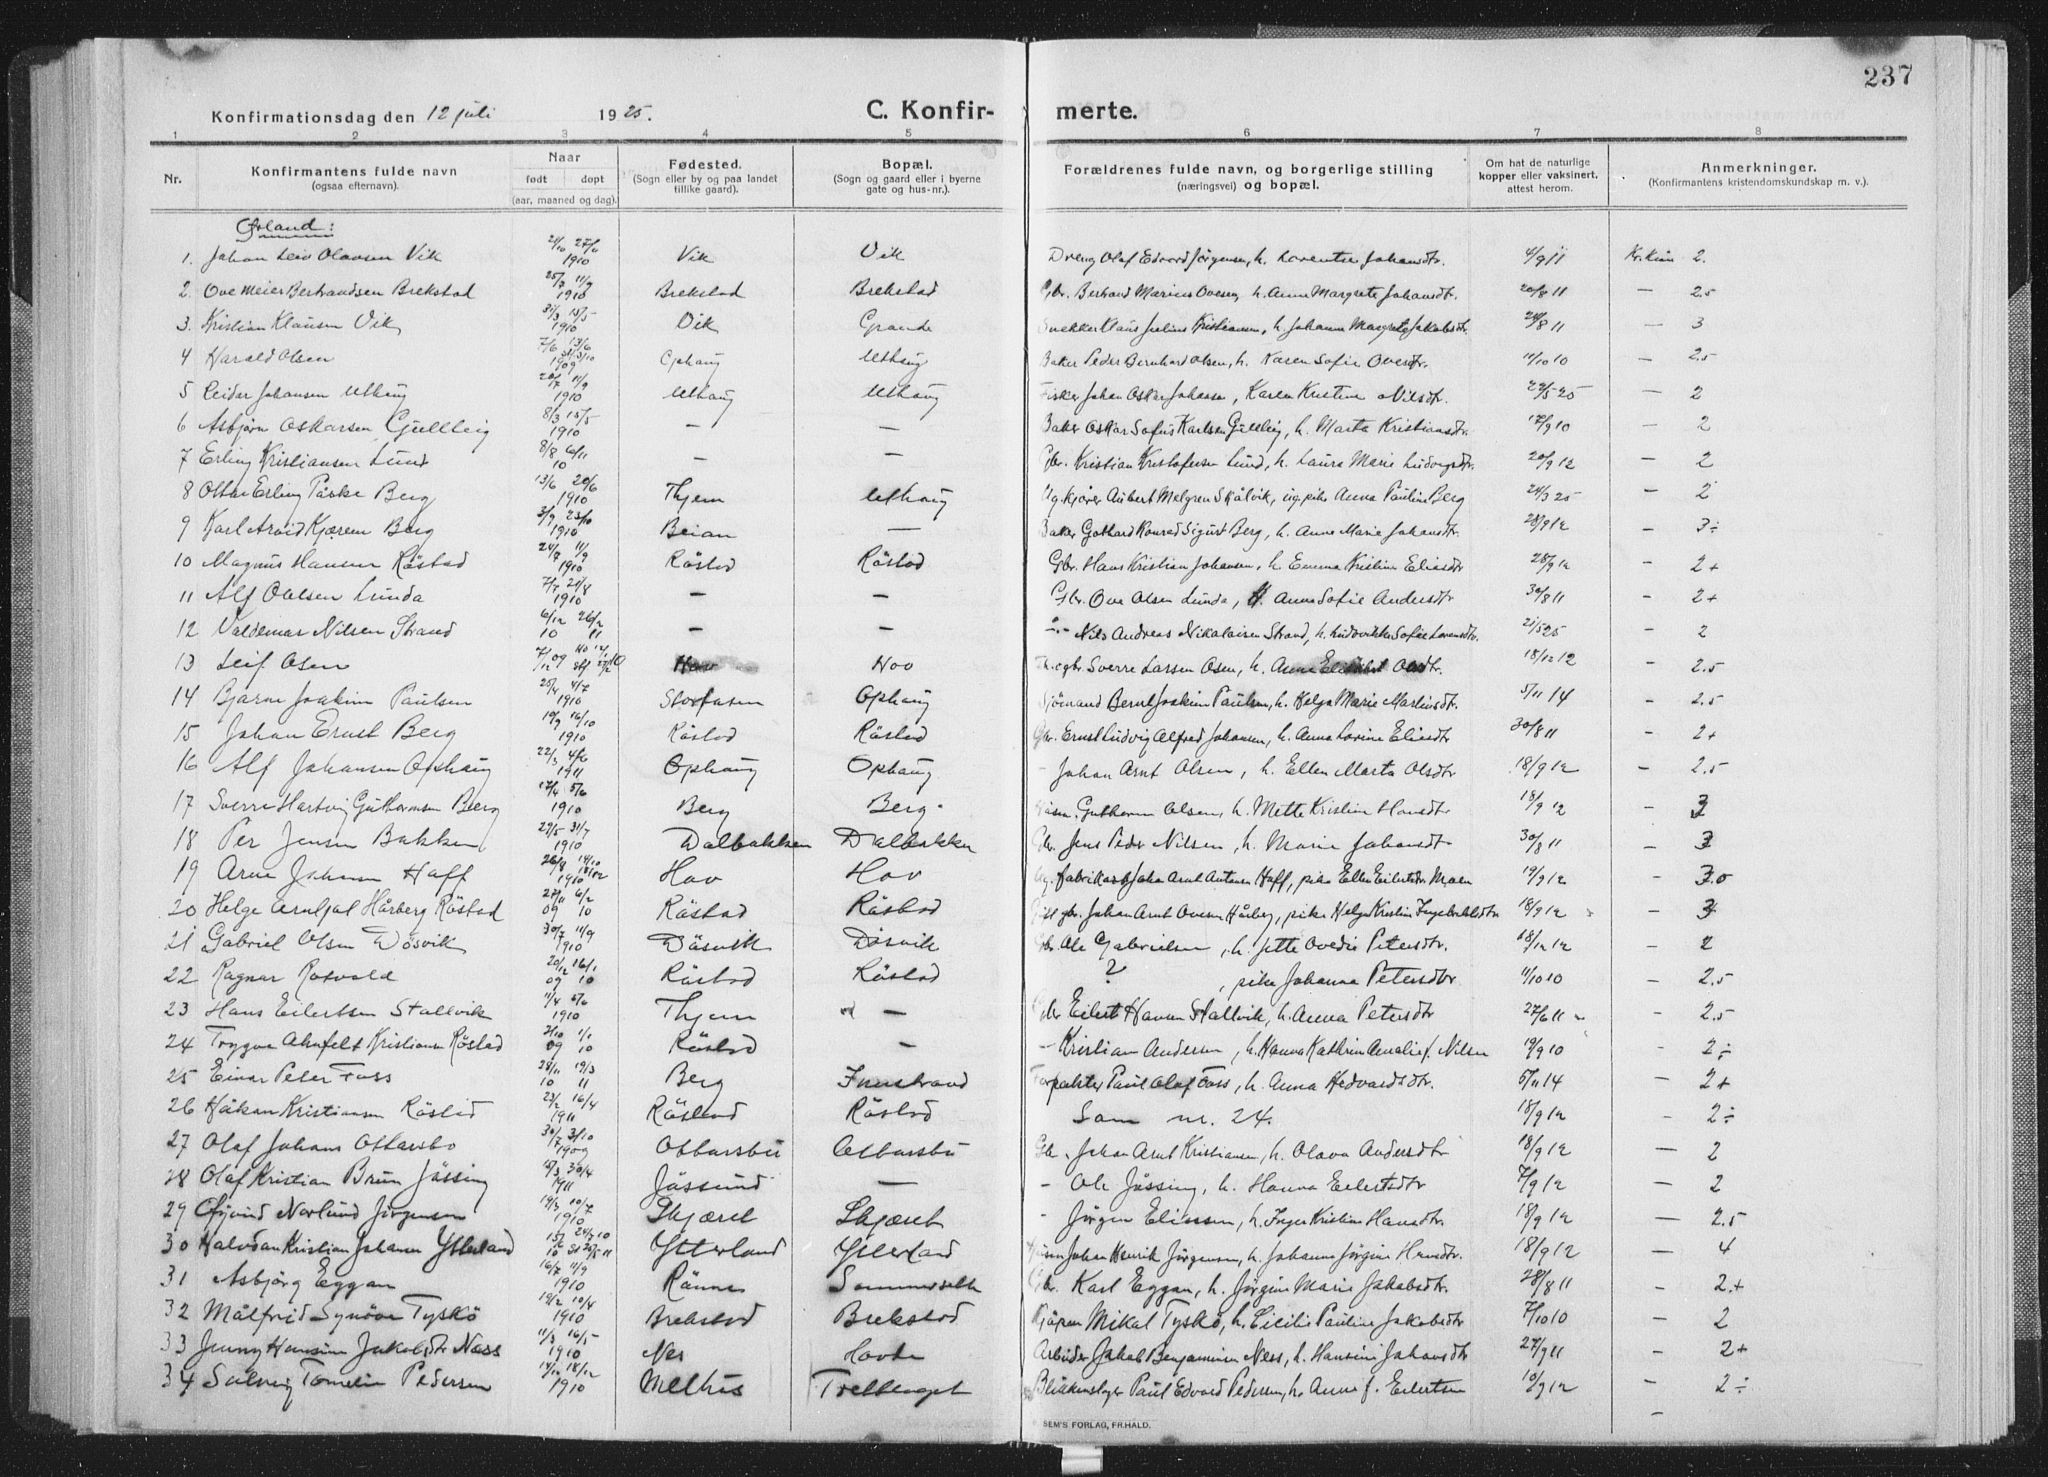 237
Konfirmationsdag den 12 juli 1925. C. Konfir- merte.
1 2 3 4 5 6 7 8
Nr. Konfirmantens fulde navn (ogsaa efternavn). Naar født døpt (aar, maaned og dag). Fødested. (Sogn eller by og paa landet tillike gaard). Bopæl. (Sogn og gaard eller i byerne gate og hus-nr.). Forældrenes fulde navn, og borgerlige stilling (næringsvei) og bopæl. Om hat de naturlige kopper eller vaksinert, attest herom. Anmerkninger. (Konfirmantens kristendomskundskap m. v.).
Ørland:
1. Johan Leiv Olavsen Vik 1910 Vik Vik Dreng Olaf Edvard Jørgensen, h. Lorentse Johansdtr. 4/9 11 2.
2. Ove Meier Bertrandsen Brekstad 25/7 11/9 1910 Brekstad Brekstad Gbr. Marius Ovesen, h. Anna Margrete Johansdtr. 20/8 11 — 2.5
3. Kristian Klausen Vik 31/3 15/5 1910 Vik Grande Snekker Klaus Julius Kristiansen, h. Johanna Margrete Jakobsdtr. 24/8 11 — 3
4 Harald Olsen 1909 Ophaug Uthaug Baker Peder Bernhard Olsen, h. Karen Sofie Ovesdtr. 11/10 10 — 2.5
5 Reidar Johansen Uthaug 20/7 11/9 1910 Uthaug Uthaug Fisker Johan Oskar Johansen, Karen Kristine Nilsdtr. 22/5-25 — 2
6 Asbjørn Oskarsen Gulleig 8/3 15/5 1910 — — Baker Oskar Sofus Karlsen Gulleig, h. Marta Kristiansdtr. 17/9 10 — 2
7 Erling Kristiansen Lund 8/8 6/11 10 — — Gbr. Kristian Kristofersen Lund, h. Laura Marie Ludvigsdtr. 20/9 12 — 2
8 Ottar Erling Påske Berg 13/6 20/6 1910 Thjem Uthaug Ug. kjører Anbert Melgren Skålvik, ug. pike Anna Pauline Berg 24/3 25 — 2
9 Karl Arvid Kjærem Berg 3/9 23/10 1910 Beian — Baker Gothard Konrad Sigurt Berg, h. Anne Marie Johansdtr. 28/9 12 — 3÷
10 Magnus Hansen Råstad 24/7 11/9 1910 Råstad Råstad Gbr. Hans Kristian Johansen, h. Emma Kristine Eliasdtr 28/9 12 — 2+
11 Alf Olelsen Lunda 7/7 21/8 1910 — — Gbr. Ove Olsen Lunda, h. Anna Sofie Andersdtr 30/8 11 — 2+
12 Valdemar Nilsen Strand 6/12 26/2 10 11 — — Nils Andreas Nikolaisen Strand, h. Ludvikke Sofie Larensdtr. 21/5 25 — 2
13 Leif Osen 7/12 09 Hov Hov gbr Sverre Larsen Osen, h. Anna 18/12 12 — 2.5
14 Bjarne Joakim Paulsen 25/4 4/7 1910 Storfosen Ophaug Sjømand Bernt Joakim Paulsen, h. Helga Marie Martinsdtr. 5/11 14 — 2.5
15 Johan Ernst Berg 19/9 16/10 1910 Råstad Råstad Gbr. Ernst Ludvig Alfred Johansen, h. Anna Lovine Eliasdtr 30/8 11 — 2+
16 Alf Johansen Ophaug 22/3 4/6 1911 Ophaug Ophaug — Johan Arnt Olsen, h. Ellen Marta Olsdtr 18/9 12 — 2.5
17 Sverre Hartvig Guthormsen Berg 17/4 5/6 1910 Berg Berg Guthorm Olsen, h. Mette Kristine Hansdtr 18/9 12 — 3
18 Per Jensen Bakken 29/5 31/7 1910 Dalbakken Dalbakken Gbr. Jens Peder Nilsen, h. Marie Johansdtr 30/8 11 — 3
19 Arne Johansen Hoff 26/8 1910 Hov Hov Ug. fabrikarb Johan Arnt Antonsen Hoff, pike Ellen Eilertsdtr Moen 19/9 12 — 3.0
20 Helge Arnljot Hårberg Råstad 27/11 6/2 09 10 Råstad Råstad gbr. Johan Arnt Ovesen Hårberg, pike Helga Kristin Ingebrektsdtr 18/9 12 — 3
21 Gabriel Olsen Døsvik 30/7 11/9 1910 Døsvik Døsvik Gbr. Ole Gabrielsen, h. Jette Ovedie Petersdtr. 18/12 12 — 2
22 Ragnar Rosvold 20/12 16/1 09 10 Råstad Råstad ? , pike Johanna Petersdtr 11/10 10 — 2.5
23 Hans Eilertsen Stallvik 11/4 5/6 1910 Thjem — Gbr Eilert Hansen Stallvik, h. Anna Petersdtr 27/6 11 — 2.5
24 Trygve Ahnfelt Kristiansen Råstad 1/1 09 10 Råstad — — Kristian Andersen, h. Hanna Kathrin Amalie f. Nilsen 19/9 10 — 2÷
25 Einar Peter Foss 28/11 19/3 10 11 Berg Innstrand Forpakter Paul Olaf Foss, h. Anna Hedvardsdtr. 5/11 14 — 2+
26 Håkon Kristiansen Råstad 23/2 16/4 1911 Råstad Råstad Som nr. 24. 18/9 12 — 2÷
27 Olaf Johans Ottersbo 30/7 3/10 1909 Ottersbu Ottersbu Gb. Johan Arnt Kristiansen, h. Olava Andersdtr 18/9 12 — 2
28 Olaf Kristian Brun Jøssing 30/4 1911 Jøssund — — Ole Jøssing, h. Hanna Eilertsdtr 7/9 12 — 2
29 Øyvind Norlund Jørgensen 19/3 10/7 1910 Skjæret Skjæret — Jørgen Eliassen, h. Inger Kristine Hansdtr. 18/9 12 — 2.5
30 Halvdan Kristian Johansen Ytterland Ytterland Ytterland Johan Henrik Jørgensen, h. Johanna Jørgine Hansdtr. 18/9 12 — 4
31 Asbjørg Eggan 16/7 11/9 1910 Rønne Sommerseth Gbr. Karl Eggan, h. Jørgine Marie Jakobsdtr. 28/8 11 — 2.+
32 Målfrid Synøve Tyskø 19/2 10/4 1910 Brekstad Brekstad Kjøpm Mikal Tyskø, h. Cicilie Pauline Jakobsdtr 7/10 10 — 2
33 Jenny Hansine Jakobsdtr Næss 11/3 16/5 1910 Nes Hovde Arbeider Jakob Benjaminsen Ness, h. Hansine Johansdtr 27/9 11 — 2+
34 Solveig Tomelie Pedersen 14/12 18/12 1910 Melhus Trethaget Blikkenslager Paul Edvard Pedersen, h. Anna f. Eilertsen 10/9 12 — 2÷
—
SEM'S FORLAG, FR.HALD.